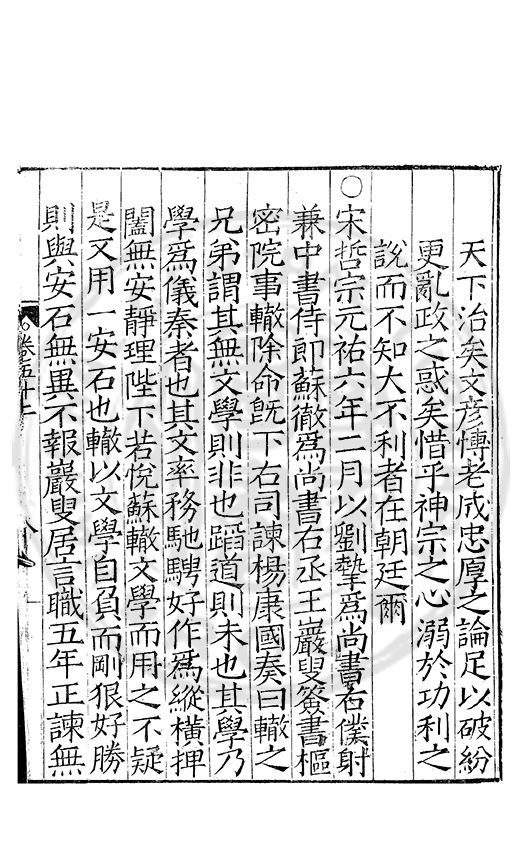 天下治矣文彦愽老成忠厚之論足以破紛
更亂政之惑矣惜乎神宗之心溺於功利之
說而不知大不利者在朝廷爾
○宋哲宗元祐六年二月以劉摯爲尚書右僕射
兼中書侍郎蘇徹爲尚書右丞王巖叟簽書樞
密院事轍除命旣下右司諫楊康國奏曰轍之
兄弟謂其無文學則非也蹈道則未也其學乃
學爲儀秦者也其文率務馳騁好作爲縱横捭
闔無安靜理陛下若悅蘇轍文學而用之不疑
是又用一安石也轍以文學自負而剛狠好勝
則與安石無異不報巖叟居言職五年正諫無
卷五十二